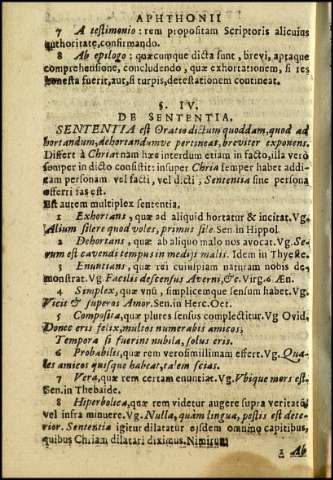 APHTHONII
7 A testimonio: rem propositam Scriptoris alicuius
authoritate, confirmando.
8 Ab epilogo: quæcumque dicta sunt, brevi, aptaque
comprehensione, concludendo, quæ exhortationem, si res
honesta fuerit, aut, si turpis, detestationem contineat.
§. IV.
DE SENTENTIA.
SENTENTIA est Oratio dictum quoddam, quod ad
hortandum, dehortandumve pertineat, breviter exponens.
Differt à Chria: nam hæc interdum etiam in facto, illa verò
semper in dicto consistit: insuper Chria semper habet addi-
tam personam vel facti, vel dicti; Sententia sine persona
offerri fas est.
Est autem multiplex sententia.
1 Exhortans, quæ ad aliquid hortatur & incitat. Vg.
Alium silere quod voles, primus sile. Sen. in Hippol.
2 Dehortans, quæ ab aliquo malo nos avocat. Vg. Se-
rum est cavendi tempus in medijs malis. Idem in Thyeste.
3 Enuntians, quæ rei cuiuspiam naturam nobis de-
monstrat. Vg. Facilis descensus Averni, &c. Virg. 6 Æn.
4 Simplex, quæ vnū, simplicemque sensum habet. Vg.
Vicit & superos Amor. Sen. in Herc. Oet.
5 Composita, quæ plures sensus complectitur. Vg. Ovid.
Donec eris felix, multos numerabis amicos;
Tempora si fuerint nubila, solus eris.
6 Probabilis, quæ rem verosimillimam effert. Vg. Qua-
les amicos quisque habeat, talem scias.
7 Vera, quæ rem certam enunciat. Vg. Vbique mors est.
Sen. in Thebaide.
8 Hiperbolica, quæ rem videtur augere supra veritatē,
vel infra minuere. Vg. Nulla, quàm lingua, pestis est dete-
rior. Sententia igitur dilatatur ejsdem omninò capitibus,
quibus Chriam dilatari diximus. Nimirum
Ab